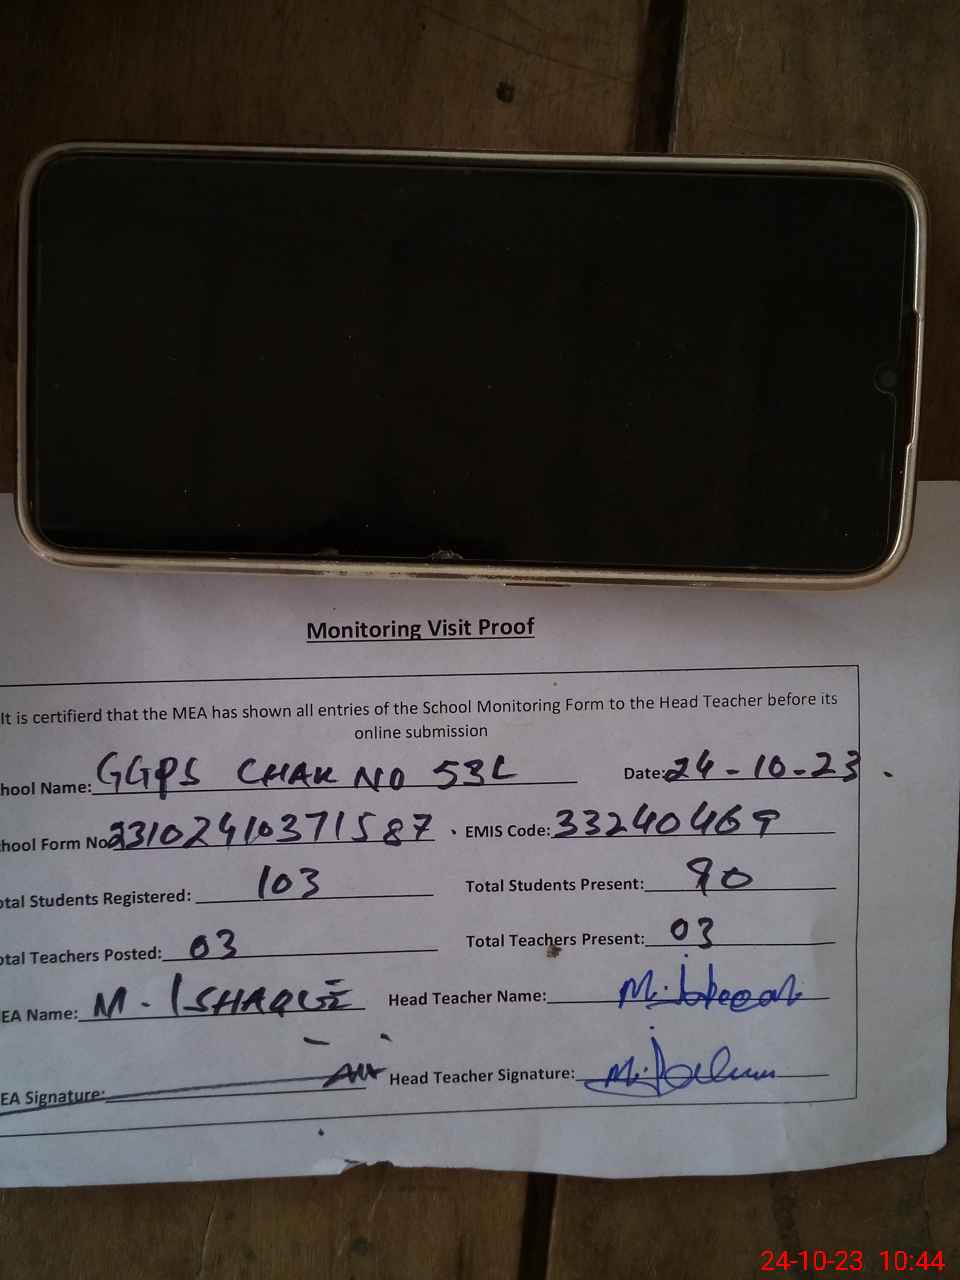 Monitoring Visit Proof
It is certifierd that the MEA has shown all entries of the School Monitoring Form to the Head Teacher before its
online submission
hool Name: GGPS CHAK NO 53L Date: 24-10-23
hool Form No 23102410371587 EMIS Code: 33240469
otal Students Registered: 103 Total Students Present: 90
otal Teachers Posted: 03 Total Teachers Present: 03
EA Name: M. ISHAQUE Head Teacher Name: M.
EA Signature: Head Teacher Signature: M.
24-10-23 10:44